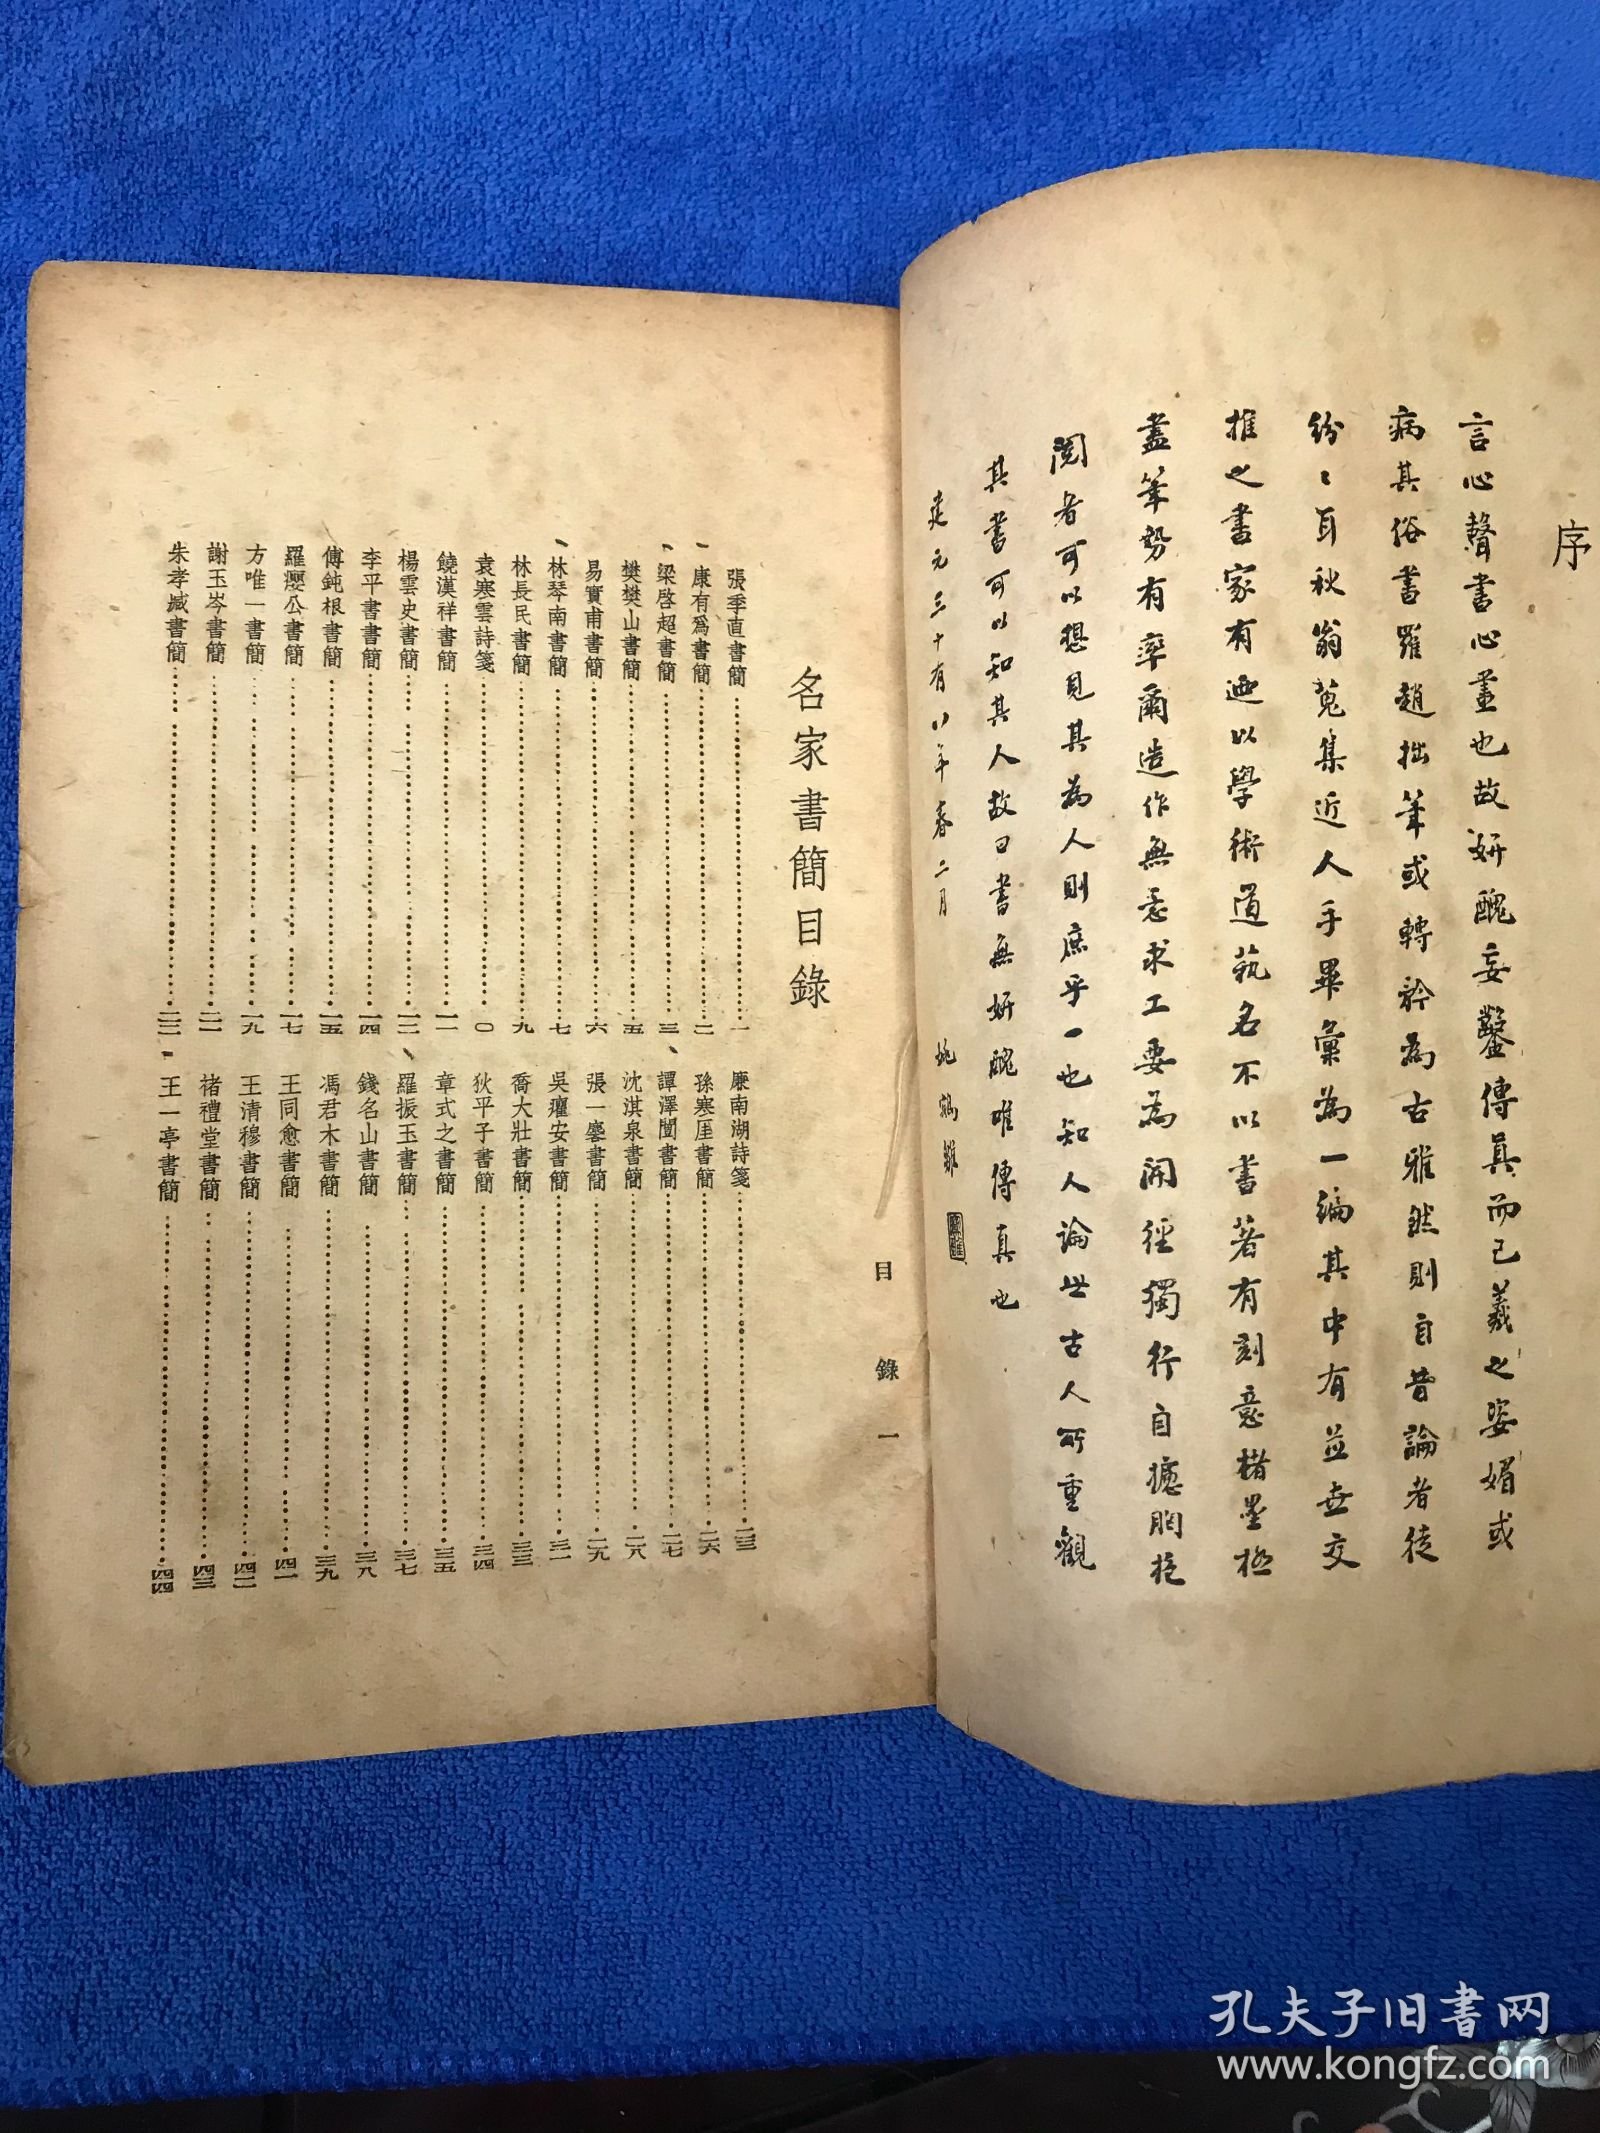 序
言心聲書心畫也故妍醜妄鑿傳真而已羲之姿媚或
病其俗書羅趙拙筆或轉矜為古雅然則自昔論者徒
紛〻耳秋翁蒐集近人手畢彙為一編其中有並世交
推之書家有迺以學術道藝名不以書著有刻意楮墨極
盡筆勢有率爾造作無意求工要為開徑獨行自攄胸抱
閱者可以想見其為人則庶乎一也知人論世古人所重觀
其書可以知其人故曰書無妍醜唯傳真也
建元三十有八年春二月 姚鵷雛
名家書簡目錄
張季直書簡 一
康有爲書簡 二
梁啓超書簡 三
樊樊山書簡 五
易實甫書簡 六
林琴南書簡 七
林長民書簡 九
袁寒雲詩箋 一〇
饒漢祥書簡 一一
楊雲史書簡 一二
李平書書簡 一四
傅鈍根書簡 一五
羅癭公書簡 一七
方唯一書簡 一九
謝玉岑書簡 二一
朱孝臧書簡 二二
廉南湖詩箋 二三
孫寒厓書簡 二六
譚澤闓書簡 二七
沈淇泉書簡 二八
張一麐書簡 二九
吳癯安書簡 三一
喬大壯書簡 三三
狄平子書簡 三四
章式之書簡 三五
羅振玉書簡 三七
錢名山書簡 三八
馮君木書簡 三九
王同愈書簡 四一
王清穆書簡 四二
褚禮堂書簡 四三
王一亭書簡 四四
目錄 一
孔夫子旧书网
www.kongfz.com